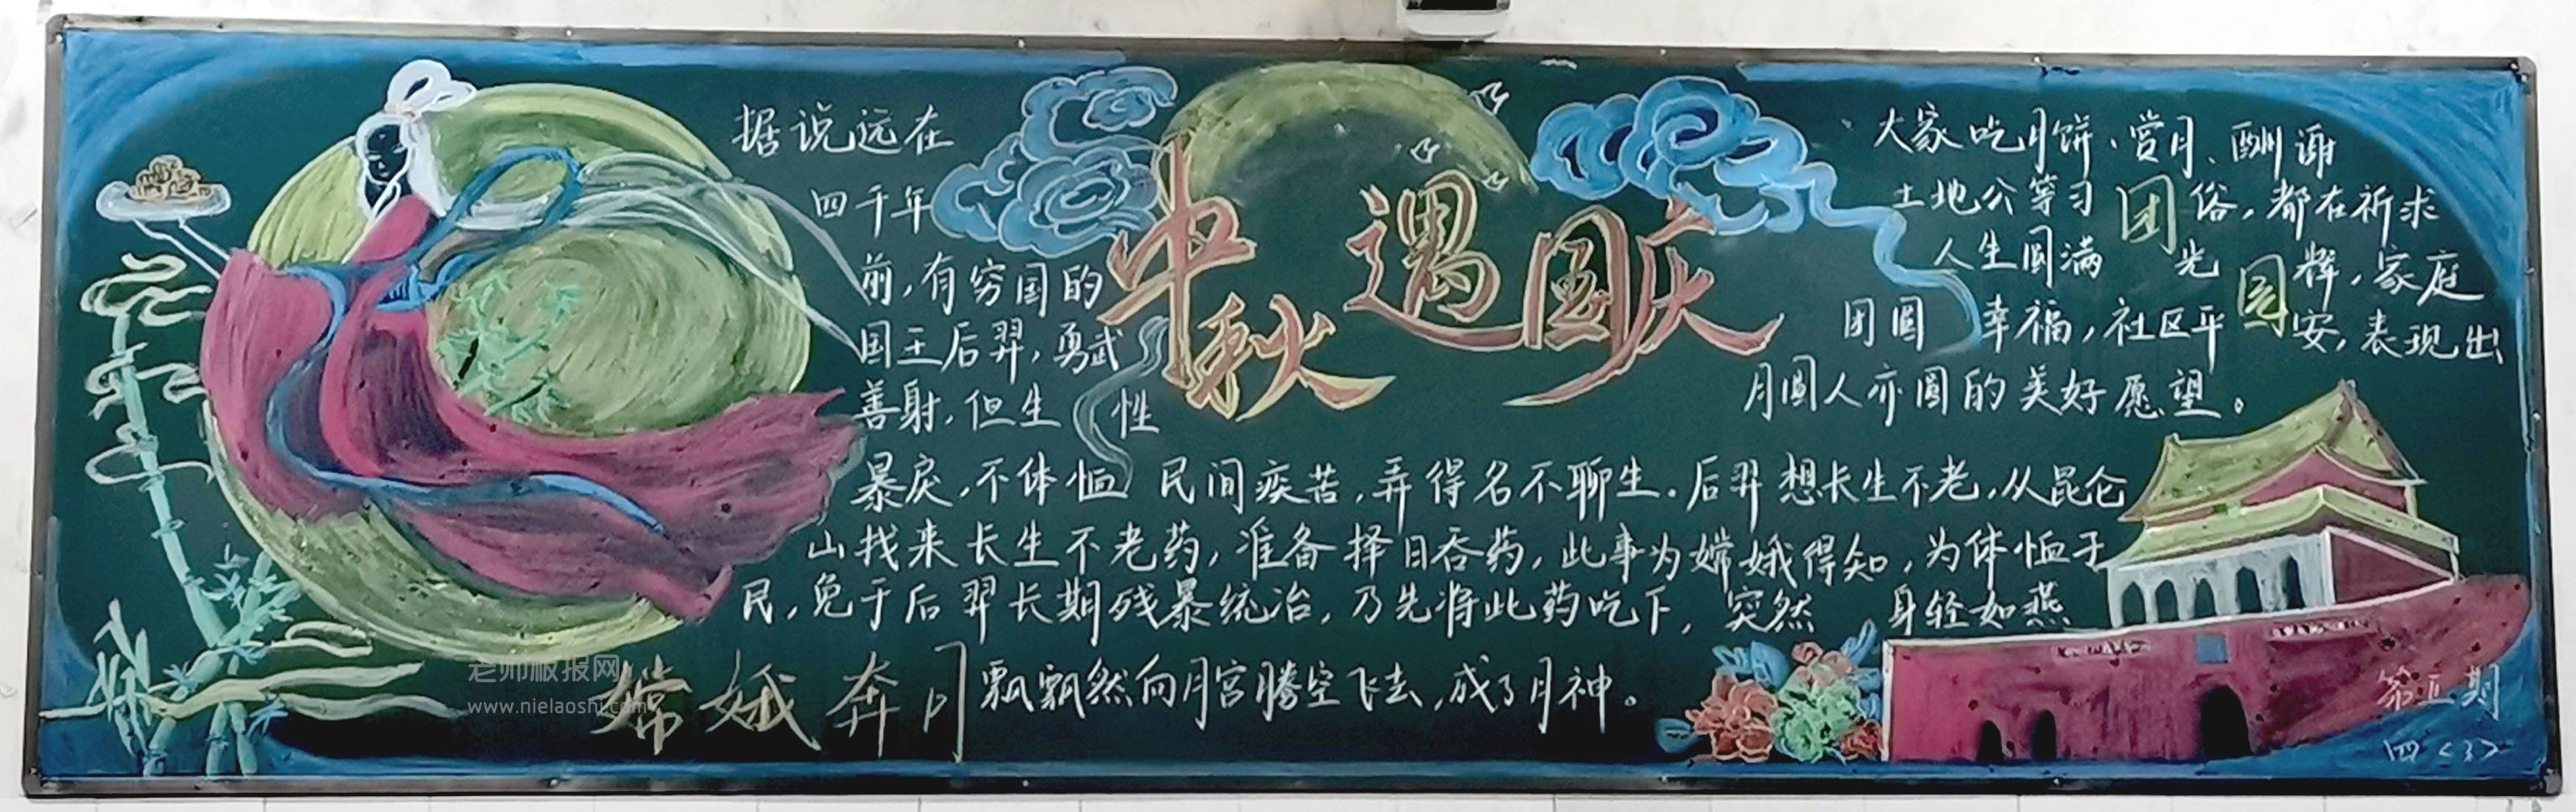 中秋遇国庆
据说远在
四千年
前，有穷国的
国王后羿，勇武
善射，但生性
暴戾，不体恤民间疾苦，弄得名不聊生。后羿想长生不老，从昆仑
山找来长生不老药，准备择日吞药，此事为嫦娥得知，为体恤于
民，免于后羿长期残暴统治，乃先将此药吃下，突然身轻如燕
飘飘然向月宫腾空飞去，成了月神。
嫦娥奔月
大家吃月饼、赏月、酬谢
土地公等习俗，都在祈求
人生圆满光辉，家庭
团圆幸福，社区平安，表现出
月圆人亦圆的美好愿望。
团圆
第五期
四<3>
老师板报网
www.nielaoshi.com